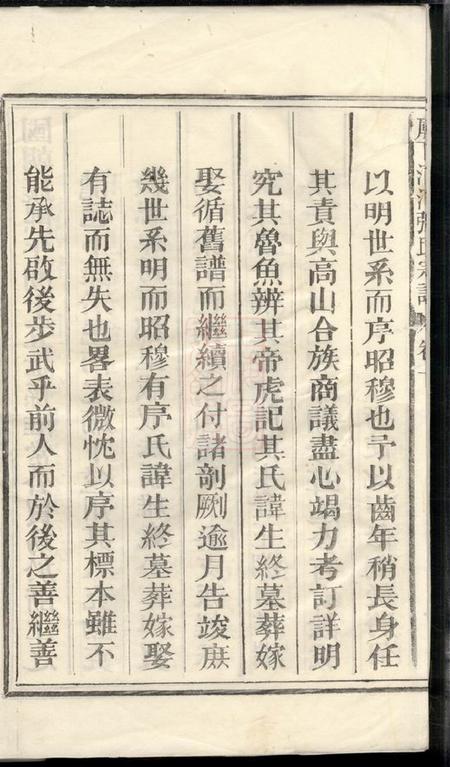 張氏宗譜
卷一
以明世系而序昭穆也予以齒年稍長身任
其責與高山合族商議盡心竭力考訂詳明
究其魯魚辨其帝虎記其氏諱生終墓葬嫁
娶循舊譜而繼續之付諸剞劂逾月告竣庶
幾世系明而昭穆有序氏諱生終墓葬嫁娶
有誌而無失也畧表微忱以序其標本雖不
能承先啟後步武乎前人而於後之善繼善